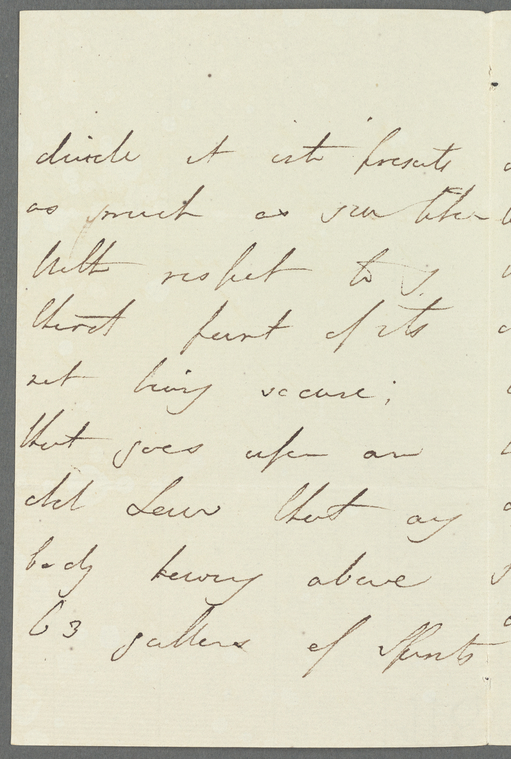 divide it into presents
as much as you like
With respect to y
third point of its
not being secure;
that goes upon an
old Law that any
body having above
63 gallons of Spirits